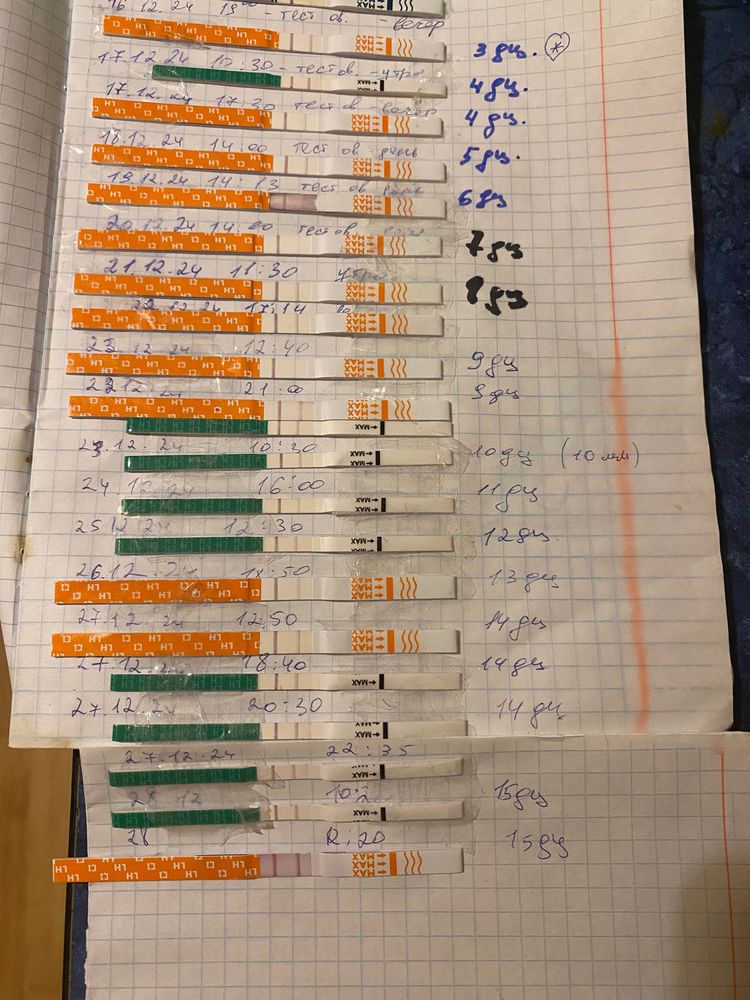 16.12.24 19⁰⁰ - тест ов. - вечер
3 дц. *
17.12.24 10:30 - тест ов - утро
MAX
4 дц.
17.12.24 17:30 тест ов - вечер
LH MAX
4 дц.
18.12.24 14:00 тест ов - день
LH MAX
5 дц.
19.12.24 14:13 тест ов день
LH MAX
6 дц
20.12.24 14:00 тест ов
LH MAX
7 дц
21.12.24 11:30 утро
LH MAX
8 дц
22.12.24 17:14
LH MAX
23.12.24 12:40
LH MAX
9 дц
21:00
LH MAX
9 дц
MAX
10:30
MAX
10 дц (10 мм)
24.12.24 16:00
MAX
11 дц
25.12.24 12:30
MAX
12 дц.
26.12
LH MAX
13 дц
27.12.24 12:50
LH MAX
14 дц
27.12.2 18:40
MAX
14 дц
27.12.24 20:30
MAX
14 дц.
27.12.24 22:35
MAX
28.12
MAX
15 дц
28 12:20
LH MAX
15 дц